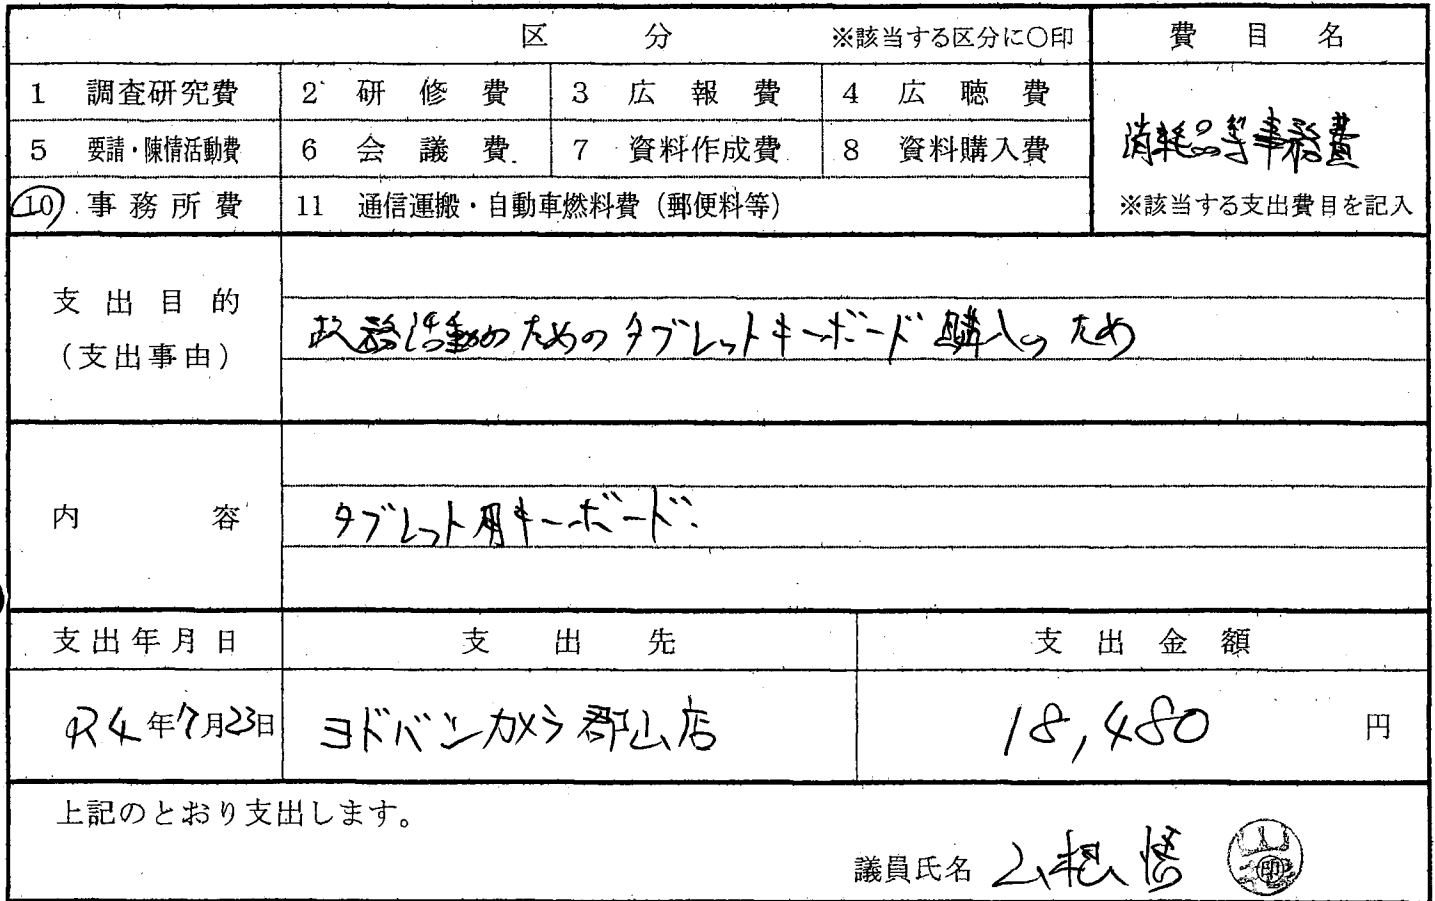 区分 ※該当する区分に〇印 費目名
1 調査研究費 2 研修費 3 広報費 4 広聴費
消耗品等事務費
5 要請・陳情活動費 6 会議費 7 資料作成費 8 資料購入費
10 事務所費 11 通信運搬・自動車燃料費(郵便料等) ※該当する支出費目を記入
支出目的
(支出事由)
政務活動のためのタブレットキーボード購入のため
内容 タブレット用キーボード
支出年月日 支出先 支出金額
R4年7月23日 ヨドバシカメラ郡山店 18,480 円
上記のとおり支出します。
議員氏名 山根悟 印